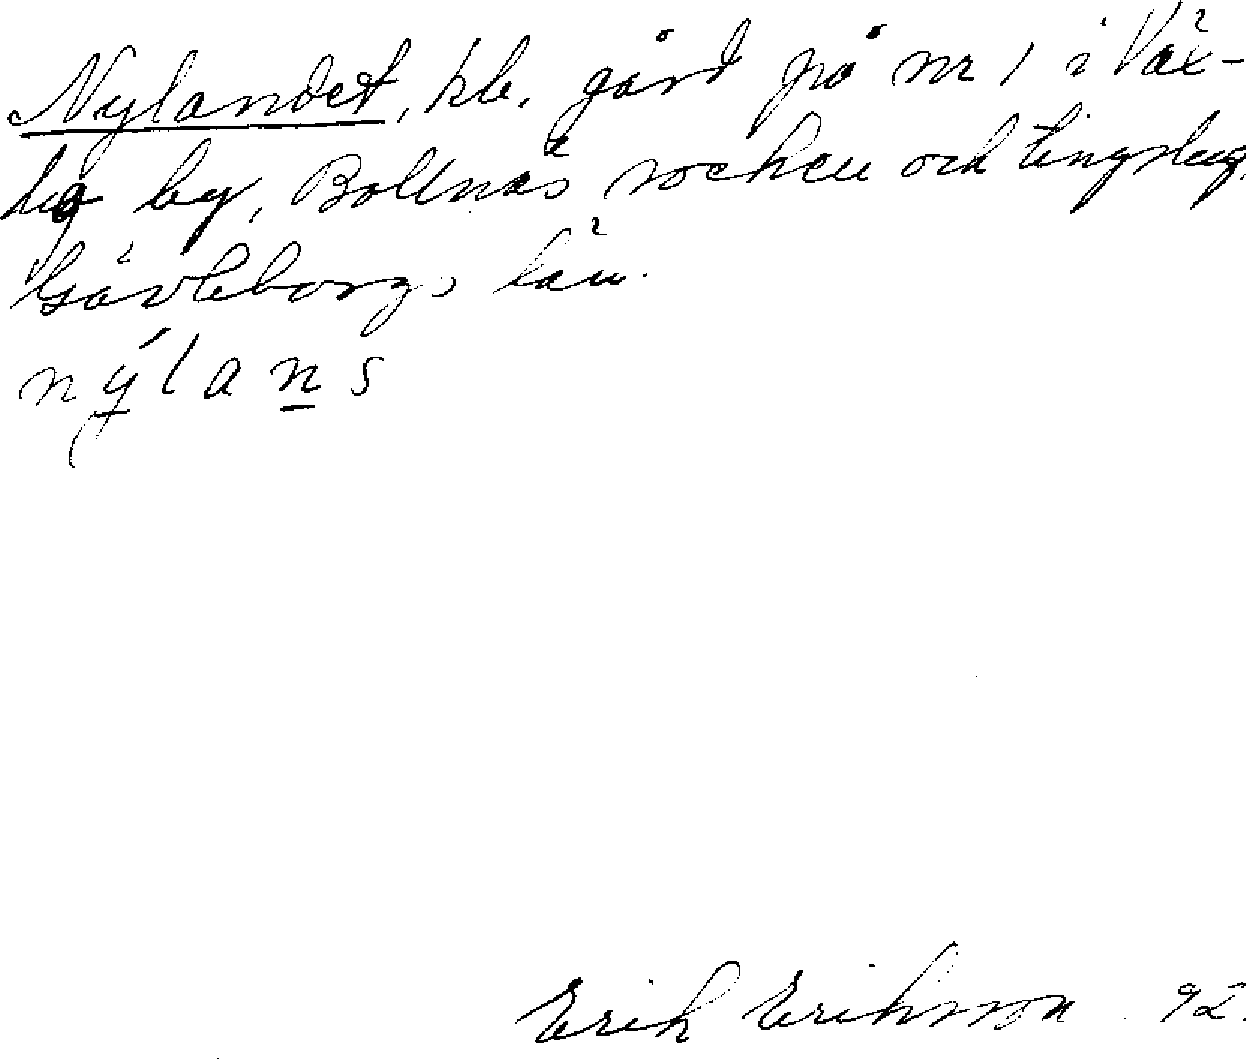 Nylandet, kb. gård på nr 1 i Växbo by, Bollnäs socken och tingslag,
Gävleborgs län.
nýlans
Erik Erikson 92.